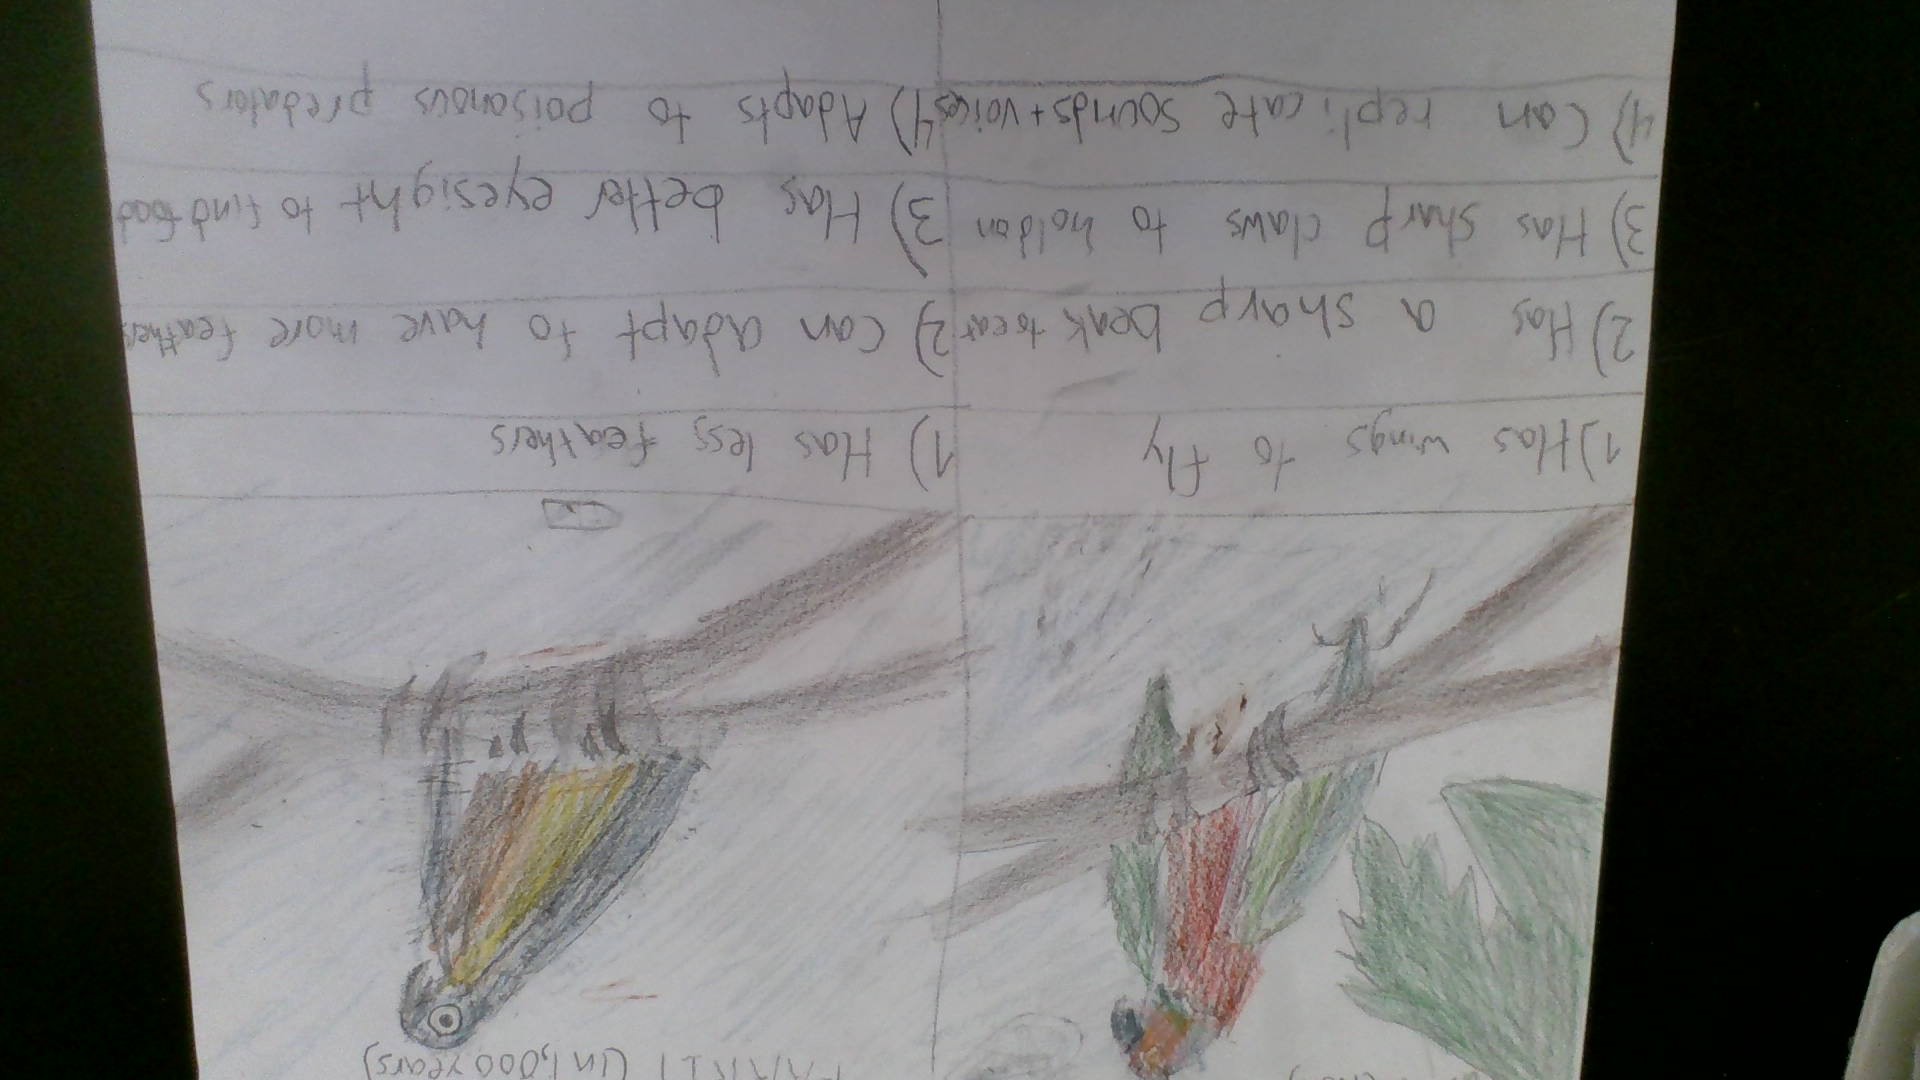 (in 1,000 years)
1) Has wings to fly
2) Has a sharp beak to eat
3) Has sharp claws to hold on
4) Can replicate sounds + voices
1) Has less feathers
2) Can adapt to have more feathers
3) Has better eyesight to find food
4) Adapts to poisonous predators